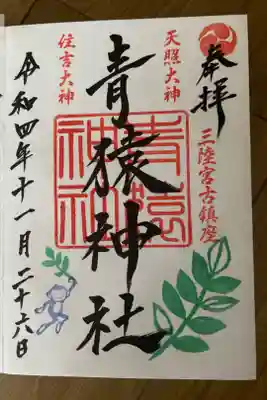 奉拝
三陸宮古鎮座
天照大神
青猿神社
住吉大神
令和四年十一月二十六日